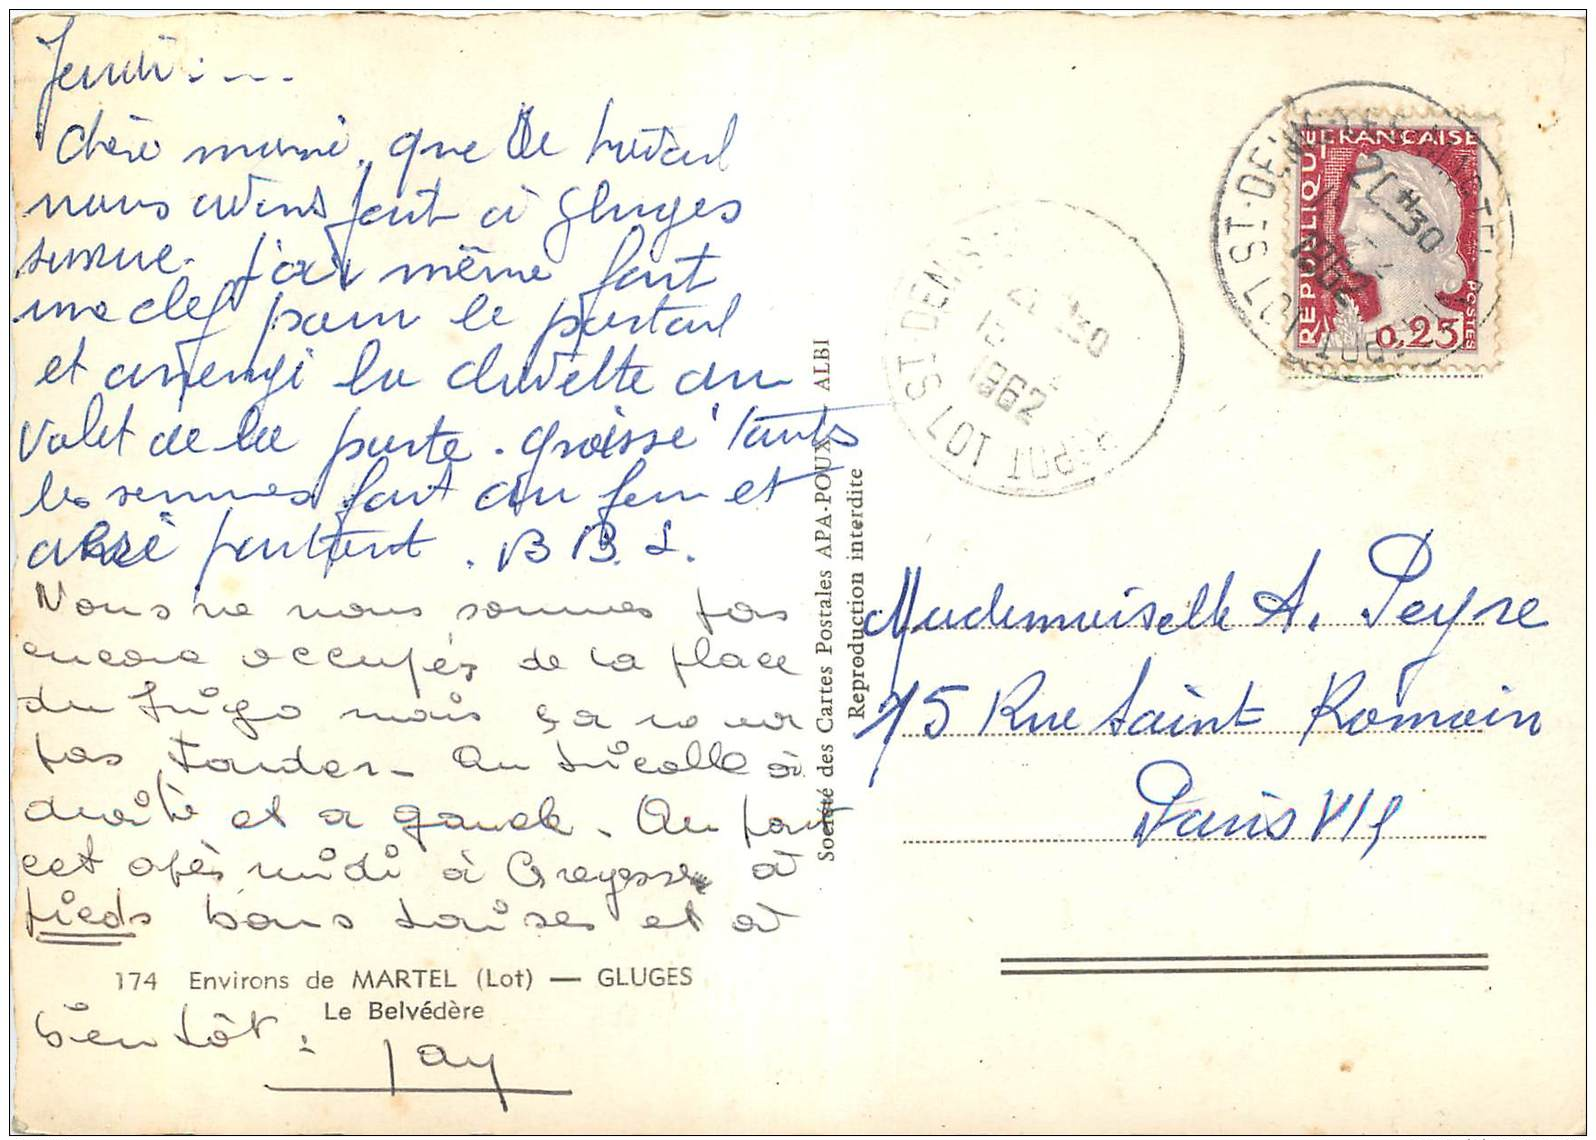 Jeudi : _ _ _
Chère mami, que de travail
nous avons fait à Gluges
j'ai même fait
une clef pour le portail
et arrengé la clavette au
volet de la porte. graissé toutes
les fait du feu et
portent. B B. L.
Nous ne nous sommes pas
encore occupés de la place
du frigo mais ça ne va
pas tarder - On tricolle à
droite et a gauche. On part
cet après midi à Creysse à
pieds bons baises et à
174 Environs de MARTEL (Lot) — GLUGES
Le Belvédère
bientôt.
Jay
Société des Cartes Postales APA-POUX - ALBI
Reproduction interdite
ST-DENIS 1962 LOT
REPUBLIQUE FRANÇAISE
POSTES
0,25
ST-DENIS-LES-MARTEL 20H30 1962 LOT
Mademoiselle A. Peyre
15 Rue Saint Romain
Paris VIe